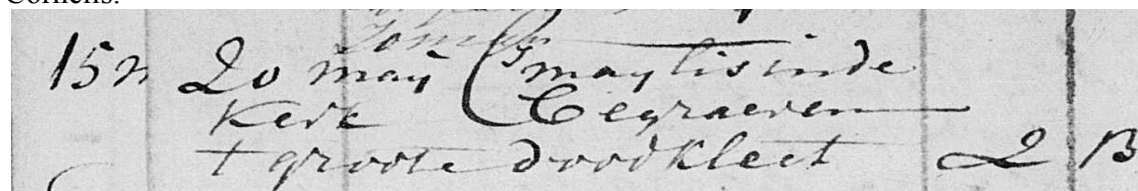 Cornelis.
15n 20 maÿ Cs maÿ lis in de
Kerk begraeven
t groote doodkleet 2 B